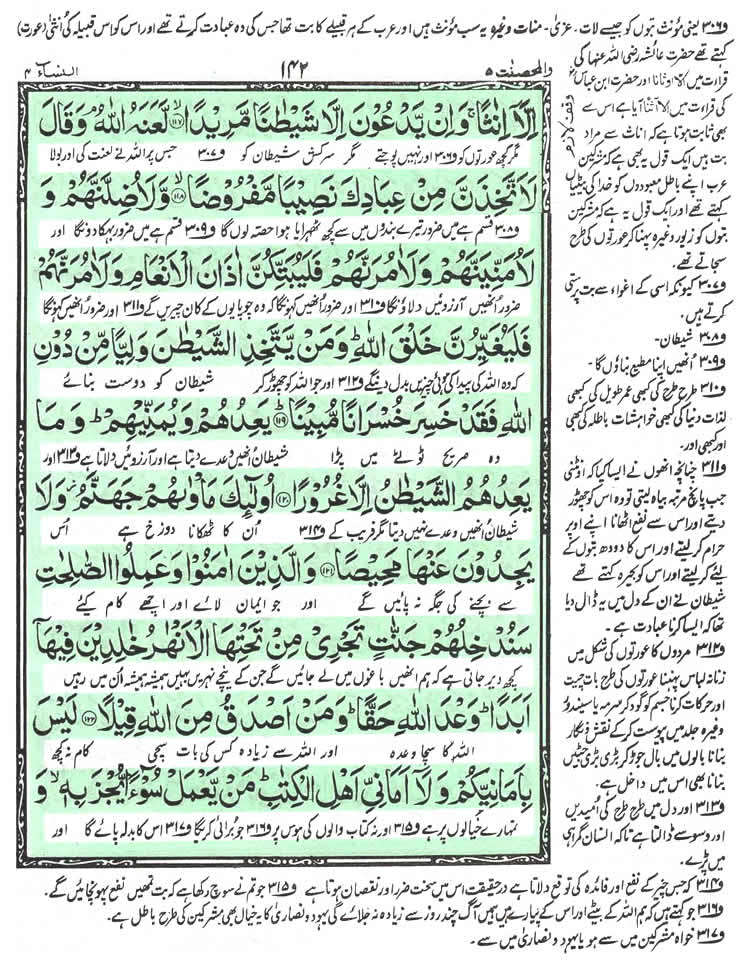 و۳۰۶ یعنی مؤنث بتوں کو جیسے لات۔ عزیٰ۔ منات وغیرہ یہ سب مؤنث ہیں اور عرب کے ہر قبیلے کا بت تھا جس کی وہ عبادت کرتے تھے اور اس کو اس قبیلہ کی اُنثیٰ (عورت)
والمحصنٰت ۵
۱۴۲
النساء ۴
اِلَّاۤ اِنٰثًا ۚ وَاِنْ یَّدْعُوْنَ اِلَّا شَیْطٰنًا مَّرِیْدًا ﴿۱۱۷﴾ لَّعَنَهُ اللّٰهُ ۘ وَقَالَ
مگر کچھ عورتوں کو و۳۰۶ اور نہیں پوجتے مگر سرکش شیطان کو و۳۰۷ جس پر اللہ نے لعنت کی اور بولا
لَاَتَّخِذَنَّ مِنْ عِبَادِكَ نَصِیْبًا مَّفْرُوْضًا ﴿۱۱۸﴾ وَّلَاُضِلَّنَّهُمْ وَ
و۳۰۸ قسم ہے میں ضرور تیرے بندوں میں سے کچھ ٹھہرایا ہوا حصہ لوں گا و۳۰۹ قسم ہے میں ضرور بہکا دونگا اور
لَاُمَنِّیَنَّهُمْ وَلَاٰمُرَنَّهُمْ فَلَیُبَتِّكُنَّ اٰذَانَ الْاَنْعَامِ وَلَاٰمُرَنَّهُمْ
ضرور اُنھیں آرزوئیں دلاؤنگا و۳۱۰ اور ضرور اُنھیں کہونگا کہ وہ چوپایوں کے کان چیریں گے و۳۱۱ اور ضرور اُنھیں کہونگا
فَلَیُغَیِّرُنَّ خَلْقَ اللّٰهِ ؕ وَمَنْ یَّتَّخِذِ الشَّیْطٰنَ وَلِیًّا مِّنْ دُوْنِ
کہ وہ اللہ کی پیدا کی ہوئی چیزیں بدل دینگے و۳۱۲ اور جو اللہ کو چھوڑ کر شیطان کو دوست بنائے
اللّٰهِ فَقَدْ خَسِرَ خُسْرَانًا مُّبِیْنًا ﴿۱۱۹﴾ یَعِدُهُمْ وَیُمَنِّیْهِمْ ؕ وَمَا
وہ صریح ٹوٹے میں پڑا شیطان اُنھیں وعدے دیتا ہے اور آرزوئیں دلاتا ہے و۳۱۳ اور
یَعِدُهُمُ الشَّیْطٰنُ اِلَّا غُرُوْرًا ﴿۱۲۰﴾ اُولٰٓئِكَ مَاْوٰىهُمْ جَهَنَّمُ ؗ وَلَا
شیطان اُنھیں وعدے نہیں دیتا مگر فریب کے و۳۱۴ اُن کا ٹھکانا دوزخ ہے اُس
یَجِدُوْنَ عَنْهَا مَحِیْصًا ﴿۱۲۱﴾ وَالَّذِیْنَ اٰمَنُوْا وَعَمِلُوا الصّٰلِحٰتِ
سے بچنے کی جگہ نہ پائیں گے اور جو ایمان لائے اور اچھے کام کیئے
سَنُدْخِلُهُمْ جَنّٰتٍ تَجْرِیْ مِنْ تَحْتِهَا الْاَنْهٰرُ خٰلِدِیْنَ فِیْهَاۤ
کچھ دیر جاتی ہے کہ ہم انھیں باغوں میں لے جائیں گے جن کے نیچے نہریں بہیں ہمیشہ ہمیشہ اُن میں رہیں
اَبَدًا ؕ وَعْدَ اللّٰهِ حَقًّا ؕ وَمَنْ اَصْدَقُ مِنَ اللّٰهِ قِیْلًا ﴿۱۲۲﴾ لَیْسَ
اللہ کا سچا وعدہ اور اللہ سے زیادہ کس کی بات سچی کام نہ کچھ
بِاَمَانِیِّكُمْ وَلَاۤ اَمَانِیِّ اَهْلِ الْكِتٰبِ ؕ مَنْ یَّعْمَلْ سُوْٓءًا یُّجْزَ بِهٖ ۙ وَ
تمہارے خیالوں پر ہے و۳۱۵ اور نہ کتاب والوں کی ہوس پر و۳۱۶ جو برائی کریگا و۳۱۷ اس کا بدلہ پائے گا اور
کہتے تھے حضرت عائشہ رضی اللہ عنہا کی
قراءت میں الا اوثانا اور حضرت ابن عباس
کی قراءت میں الا اثنا آیا ہے اس سے
بھی ثابت ہوتا ہے کہ اناث سے مراد
بت ہیں ایک قول یہ بھی ہے کہ مشرکین
عرب اپنے باطل معبودوں کو خدا کی بیٹیاں
کہتے تھے اور ایک قول یہ ہے کہ مشرکین
بتوں کو زیور وغیرہ پہنا کر عورتوں کی طرح
سجاتے تھے۔
و۳۰۷ کیونکہ اسی کے اغواء سے بت پرستی
کرتے ہیں۔
و۳۰۸ شیطان۔
و۳۰۹ اُنھیں اپنا مطیع بناؤں گا۔
و۳۱۰ طرح طرح کی کبھی عمر طویل کی کبھی
لذات دنیا کی کبھی خواہشات باطلہ کی بھی
اور کبھی اور۔
و۳۱۱ چنانچہ انھوں نے ایسا کیا کہ اونٹنی
جب پانچ مرتبہ بیاہ لیتی تو وہ اس کو چھوڑ
دیتے اور اس سے نفع اٹھانا اپنے اوپر
حرام کر لیتے اور اس کا دودھ بتوں کے
لئے کر لیتے اور اس کو بحیرہ کہتے تھے
شیطان نے ان کے دل میں یہ ڈال دیا
تھا کہ ایسا کرنا عبادت ہے۔
و۳۱۲ مردوں کا عورتوں کی شکل میں
زنانہ لباس پہننا عورتوں کی طرح بات چیت
اور حرکات کرنا جسم کو گود کر سرمہ یا سیندور
وغیرہ جلد میں پیوست کر کے نقش و نگار
بنانا بالوں میں بال جوڑ کر بڑی بڑی جٹیں
بنانا بھی اس میں داخل ہے۔
و۳۱۳ اور دل میں طرح طرح کی اُمیدیں
اور وسوسے ڈالتا ہے تاکہ انسان گمراہی
میں پڑے۔
و۳۱۴ کہ جس چیز کے نفع اور فائدہ کی توقع دلاتا ہے درحقیقت اس میں سخت ضرر اور نقصان ہوتا ہے و۳۱۵ جو تم نے سوچ رکھا ہے کہ بت تمھیں نفع پہونچائیں گے۔
و۳۱۶ جو کہتے ہیں کہ ہم اللہ کے بیٹے اور اس کے پیارے ہیں ہمیں آگ چند روز سے زیادہ نہ جلائے گی یہود و نصاریٰ کا یہ خیال بھی مشرکین کی طرح باطل ہے۔
و۳۱۷ خواہ مشرکین میں سے ہو یا یہود و نصاریٰ میں سے۔